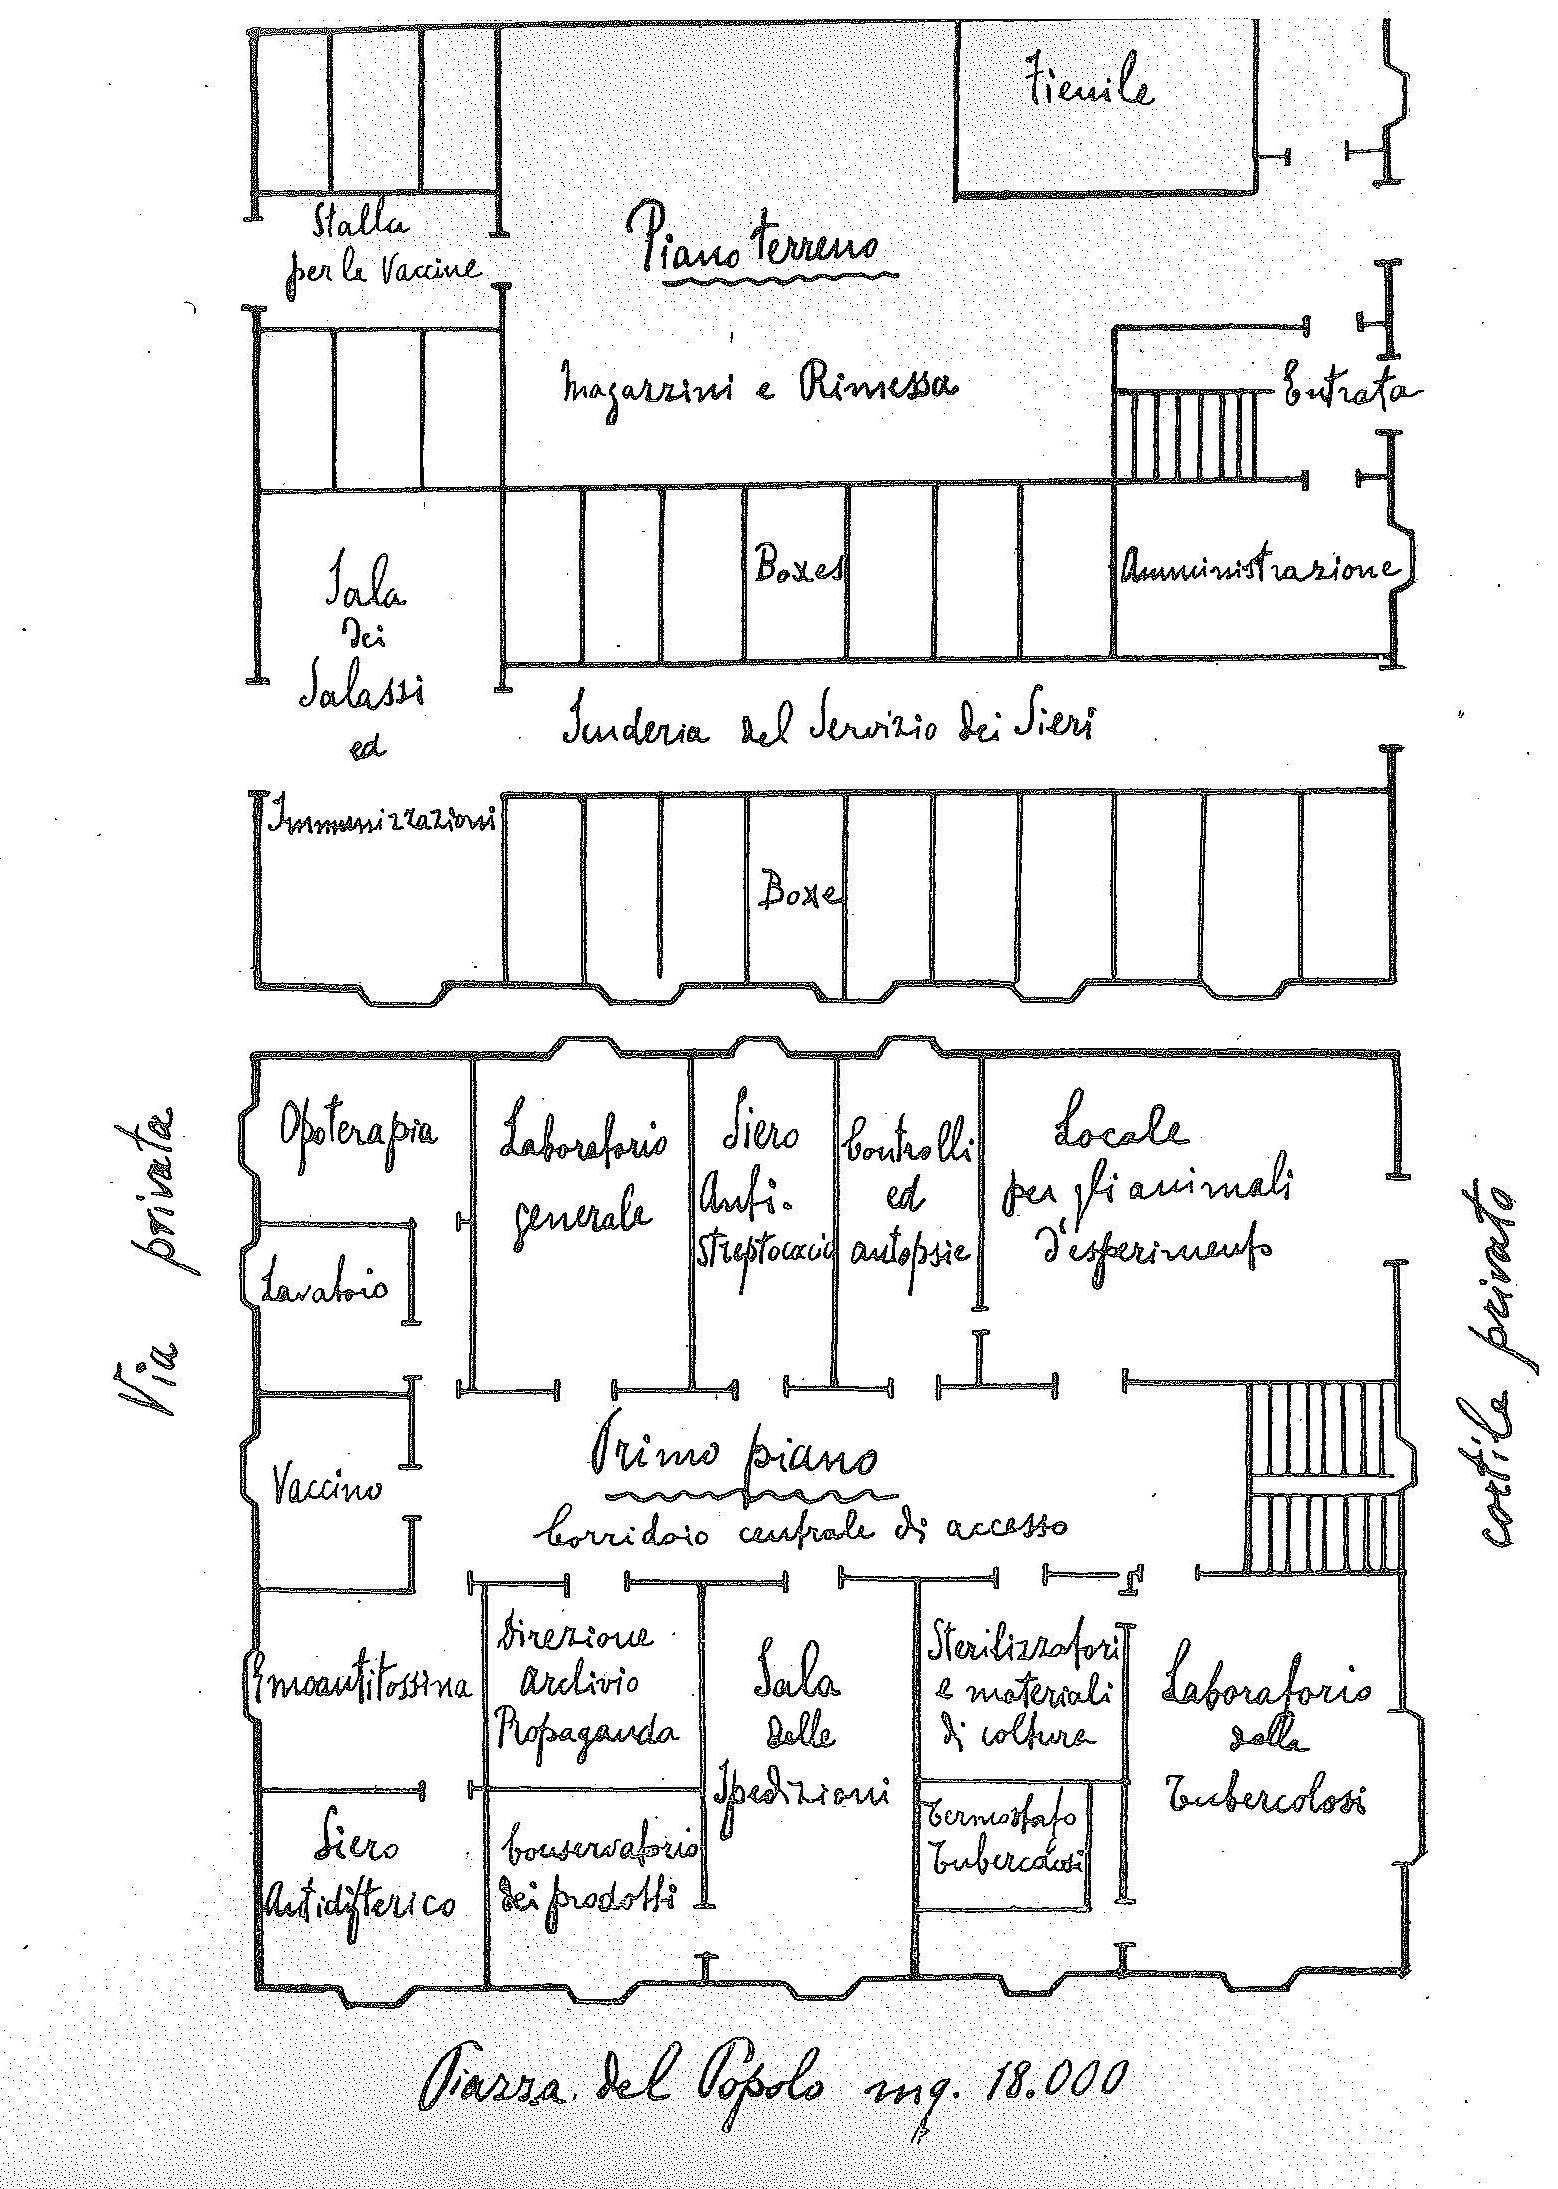 Fienile
Stalla
per le Vaccine
Piano terreno
Magazzini e Rimessa
Entrata
Sala
dei
Salassi
ed
Immunizzazioni
Boxes
Amministrazione
Scuderia del Servizio dei Sieri
Boxe
Via privata
cortile privato
Opoterapia
Laboratorio
generale
Siero
Anti-
streptococcic
Controlli
ed
autopsie
Locale
per gli animali
d'esperimento
Lavatoio
Vaccino
Primo piano
Corridoio centrale di accesso
Emoantitossina
Direzione
Archivio
Propaganda
Sala
delle
Spedizioni
Sterilizzatori
e materiali
di coltura
Laboratorio
della
Tubercolosi
Siero
Antidifterico
Conservatorio
dei prodotti
Termostato
Tubercolosi
Piazza del Popolo mq. 18.000